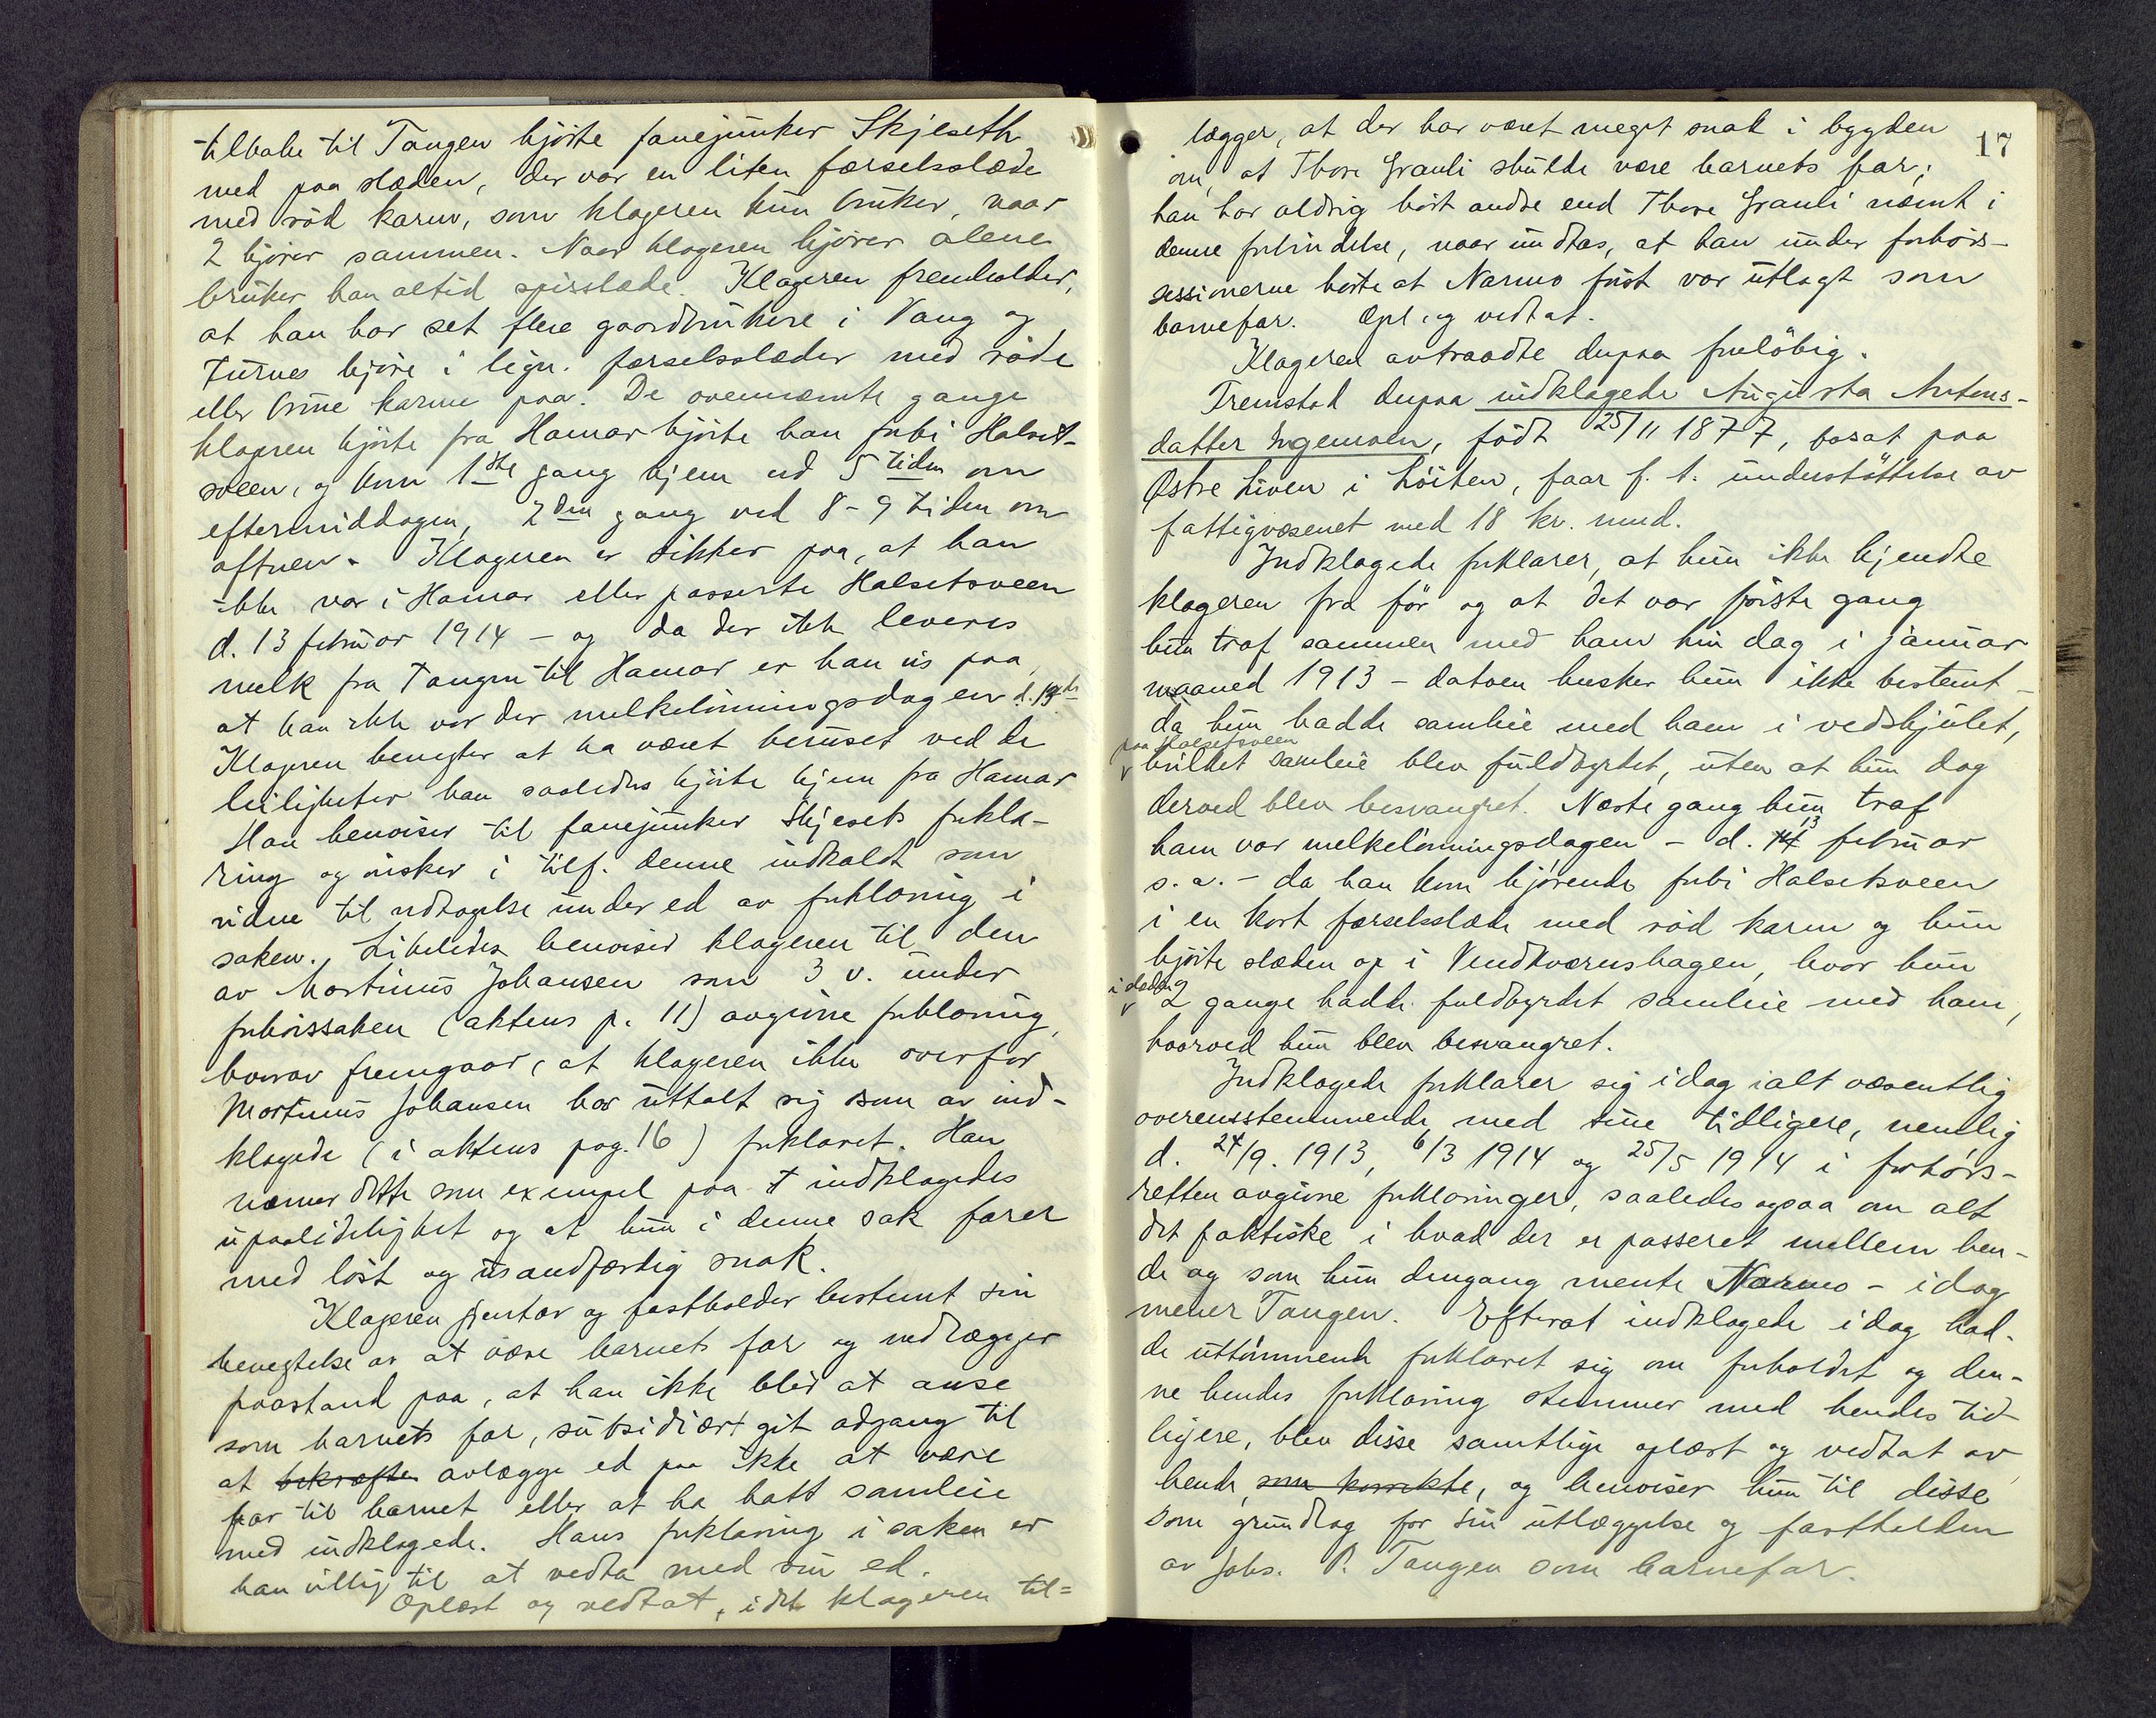 tilbake til Tangen kjørte fanejunker Skjeseth
med paa slæden, der var en liten færselsslæde
med rød karm, som klageren kun bruker, naar
2 kjører sammen. Naar klageren kjører alene
bruker han altid spisslæde. Klageren fremholder,
at han har set flere gaardbrukere i Vang og
Furnes kjøre i lign. færselsslæder med røde
eller brune karme paa. De ovennævnte gange
klageren kjørte fra Hamar kjørte han forbi Halset-
sveen, og kom 1ste gang hjem ved 5 tiden om
eftermiddagen, 2den gang ved 8-9 tiden om
aftnen. Klageren er sikker paa, at han
ikke var i Hamar eller passerte Halsetsveen
d. 13 februar 1914 - og da der ikke leveres
melk fra Tangen til Hamar er han vis paa,
at han ikke var der melkelønningsdagen d. 13de
Klageren benegter at ha været beruset ved de
leiligheter han saaledes kjørte hjem fra Hamar
Han henviser til fanejunker Skjeseths forkla-
ring og ønsker i tilf. denne indkaldt som
vidne til vedtagelse under ed av forklaring i
saken. Likeledes henviser klageren til den
av Martinus Johansen som 3 v. under
forhørssaken (aktens p. 11) avgivne forklaring,
hvorav fremgaar, at klageren ikke overfor
Martinus Johansen har uttalt sig som av ind-
klagede (i aktens pag. 16) forklaret. Han
nævner dette som exempel paa indklagedes
upaalidelighet og at hun i denne sak farer
med løst og usandfærdig snak.
Klageren gjentar og fastholder bestemt sin
benegtelse av at være barnets far og nedlægger
paastand paa, at han ikke blir at anse
som barnets far, subsidiært git adgang til
at bekræfte avlægge ed paa ikke at være
far til barnet eller at ha hatt samleie
med indklagede. Hans forklaring i saken er
han villig til at vedta med sin ed.
Oplæst og vedtat, idet klageren til=
17
lægger, at der har været meget snak i bygden
om, at Thore Grauli skulde være barnets far;
han har aldrig hørt andre end Thore Grauli nævnt i
denne forbindelse, naar undtas, at han under forhørs-
sessionerne hørte at Narmo først var utlagt som
barnefar. Opl. og vedtat.
Klageren avtraadte derpaa foreløbig.
Fremstod derpaa indklagede Augusta Antons-
datter Engemoen, født 25/11 1877, bosat paa
Østre Liven i Løiten, faar f. t. understøttelse av
fattigvæsenet med 18 kr. mnd.
Indklagede forklarer, at hun ikke kjendte
klageren fra før og at det var første gang
hun traf sammen med ham hin dag i januar
maaned 1913 - datoen husker hun ikke bestemt -
da hun hadde samleie med ham i vedskjulet,
paa Halsetsveen
hvilket samleie blev fuldbyrdet, uten at hun dog
derved blev besvangret. Næste gang hun traf
ham var melkelønningsdagen - d. 13 februar
s. a. - da han kom kjørende forbi Halsetsveen
i en kort færselsslæde med rød karm og hun
kjørte slæden op i Vendkværnshagen, hvor hun
i slæden
2 gange hadde fuldbyrdet samleie med ham,
hvorved hun blev besvangret.
Indklagede forklarer sig idag ialt væsentlig
overensstemmende med sine tidligere, nemlig
d. 24/9. 1913, 6/3 1914 og 25/5 1914 i forhørs-
retten avgivne forklaringer, saaledes ogsaa om alt
det faktiske i hvad der er passeret mellem hen-
de og som hun dengang mente Narmo - idag
mener Tangen. Efterat indklagede idag had-
de uttømmende forklaret sig om forholdet og den-
ne hendes forklaring stemmer med hendes tid-
ligere, blev disse samtlige oplæst og vedtat av
hende, som korrekte, og henviser hun til disse
som grundlag for sin utlæggelse og fastholden
av Johs. P. Tangen som barnefar.